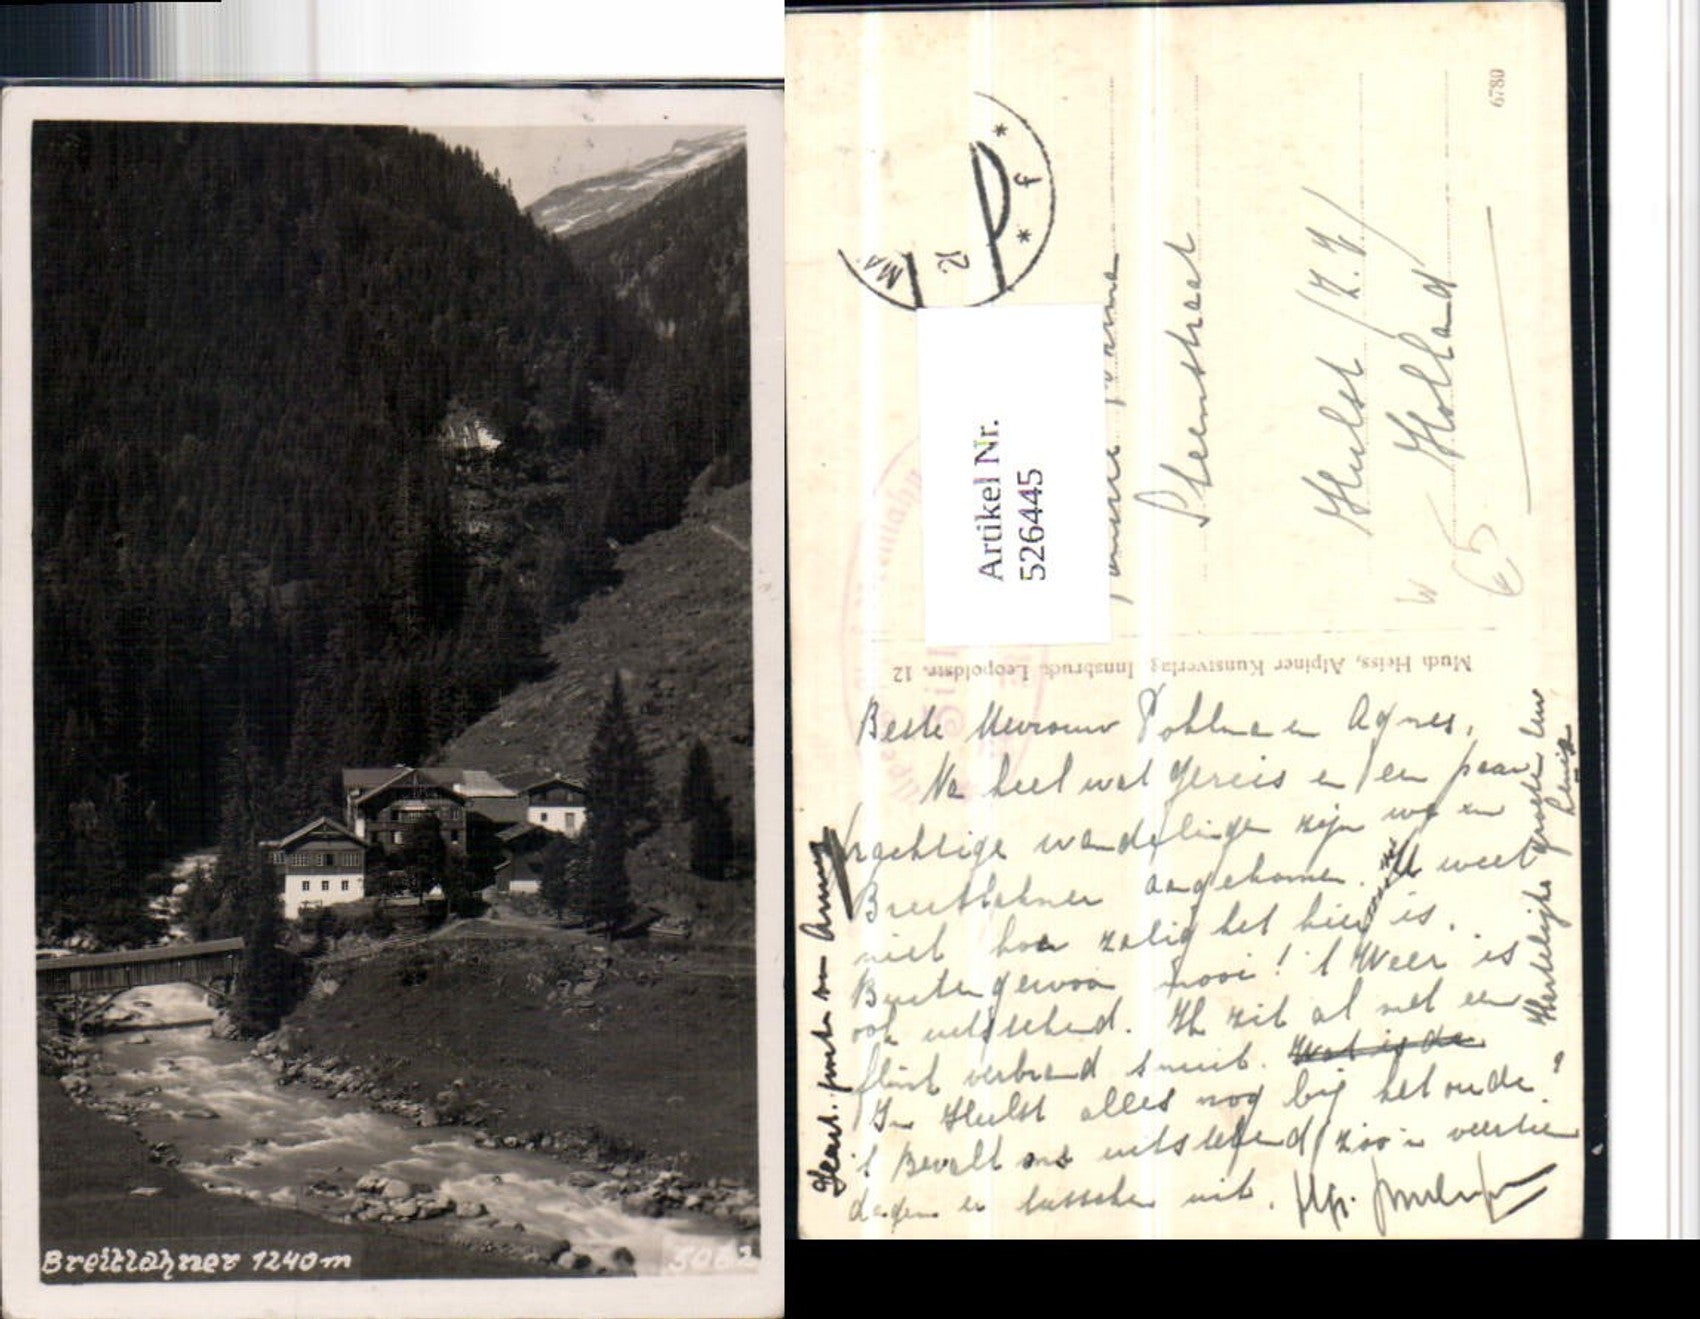 Breitlahner 1240 m
5082
6780
Artikel Nr.
526445
Steenstraat
Hulst /Z.V/
Holland
65
Much Heiss, Alpiner Kunstverlag Innsbruck, Leopoldstr. 12
Beste Mevrouw Pohlman en Agnes,
Na heel wat gereis en een paar
prachtige wandelingen zijn we in
Breitlahner aangekomen. U weet
niet hoe zalig het hier is.
Buitengewoon mooi! 't Weer is
ook uitstekend. Ik zit al met een
flink verbrand snuit. Wat is de
In Hulst alles nog bij het oude?
't Bevalt ons uitstekend zoo'n veertien
dagen er tusschen uit.
Hartelijke groeten